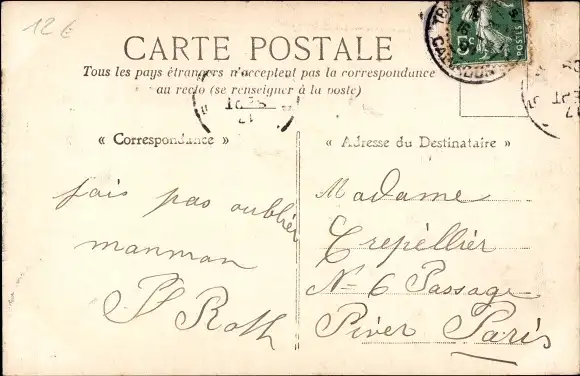 12 €
CARTE POSTALE
Tous les pays étrangers n'acceptent pas la correspondance
au recto (se renseigner à la poste)
« Correspondance »
« Adresse du Destinataire »
fais pas oublier
manman
Roth
Madame
Crepellier
N- 6 Passage
Piver Paris
SEPT
CALVADOS